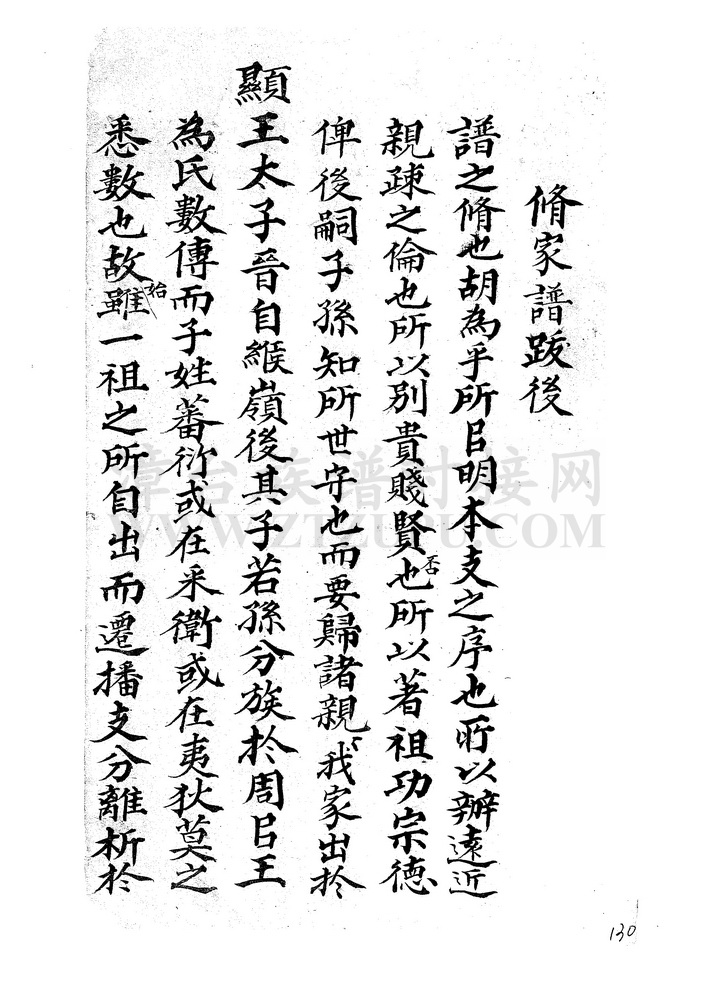 脩家譜跋後
譜之脩也胡為乎所㠯明本支之序也所以辦遠近
親疎之倫也所以別貴賤賢否也所以著祖功宗德
俾後嗣子孫知所世守也而要歸諸親〻我家出於
顯王太子晉自緱嶺後其子若孫分族於周㠯王
為氏數傳而子姓蕃衍或在采衛或在夷狄莫之
悉數也故雖始一祖之所自出而遷播支分離析於
漳台族谱对接网
WWW.ZTZUPU.COM
130